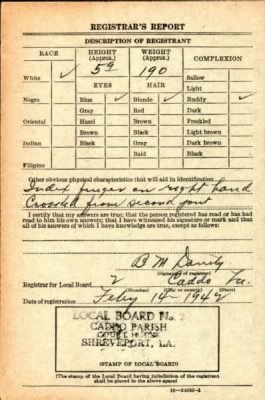 REGISTRAR'S REPORT
DESCRIPTION OF REGISTRANT
RACE HEIGHT (Approx.) WEIGHT (Approx.) COMPLEXION
White ✓ 59 190 Sallow
EYES HAIR Light
Negro Blue ✓ Blonde ✓ Ruddy ✓
Gray Red Dark
Oriental Hazel Brown Freckled
Brown Black Light brown
Indian Black Gray Dark brown
Bald Black
Filipino
Other obvious physical characteristics that will aid in identification
Index finger on right hand
Crooked from second joint
I certify that my answers are true; that the person registered has read or has had
read to him his own answers; that I have witnessed his signature or mark and that
all of his answers of which I have knowledge are true, except as follows:
B M
(Signature of registrar)
Registrar for Local Board 2 Caddo La.
(Number) (City or county) (State)
Date of registration Feby 14 - 1942
LOCAL BOARD No. 2
CADDO PARISH
COURT HOUSE
SHREVEPORT, LA.
(STAMP OF LOCAL BOARD)
(The stamp of the Local Board having jurisdiction of the registrant
shall be placed in the above space)